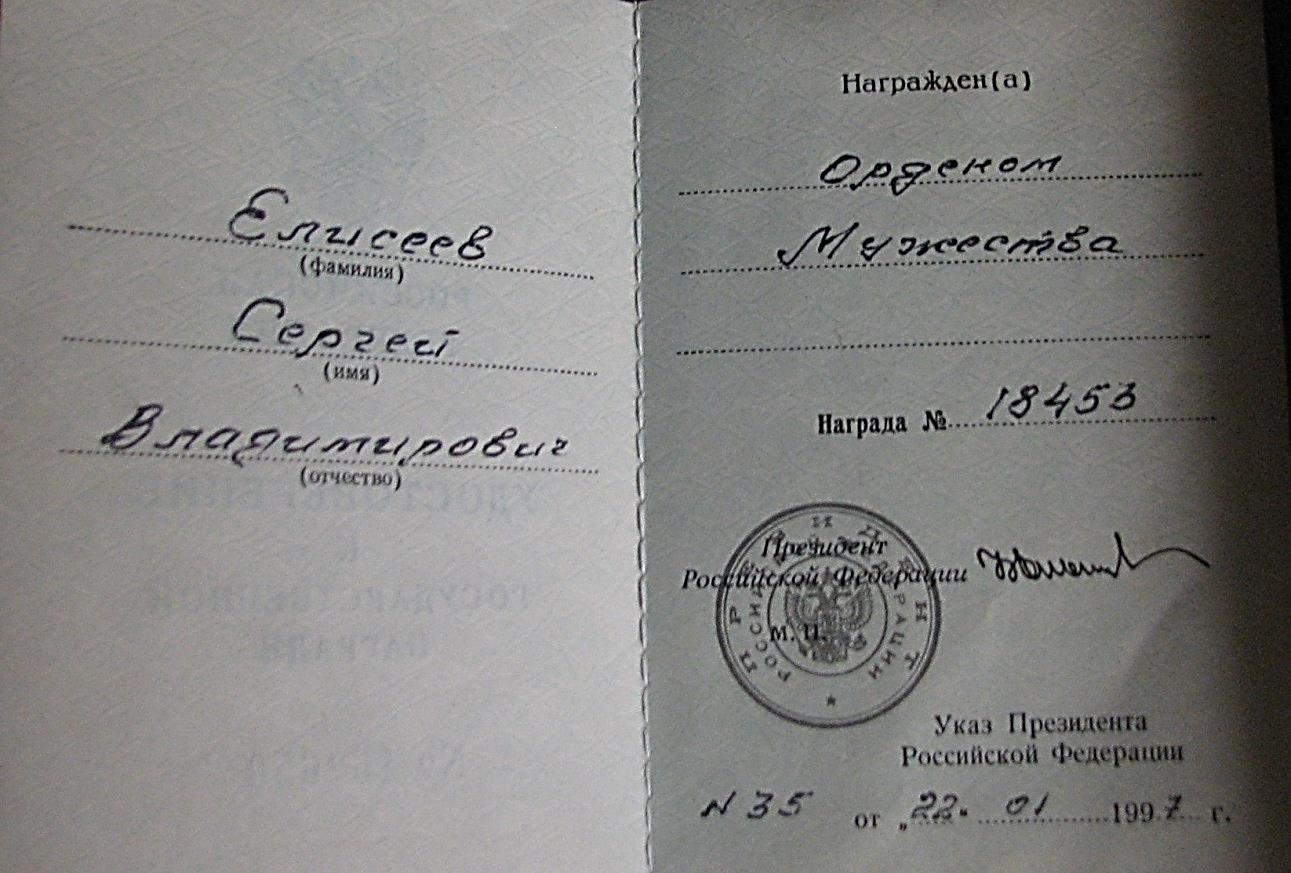 Елисеев
(фамилия)
Сергей
(имя)
Владимирович
(отчество)
Награжден(а)
Орденом
Мужества
Награда № 18453
Президент
Российской Федерации
М. П.
Указ Президента
Российской Федерации
N 35 от „22" 01 1997 г.